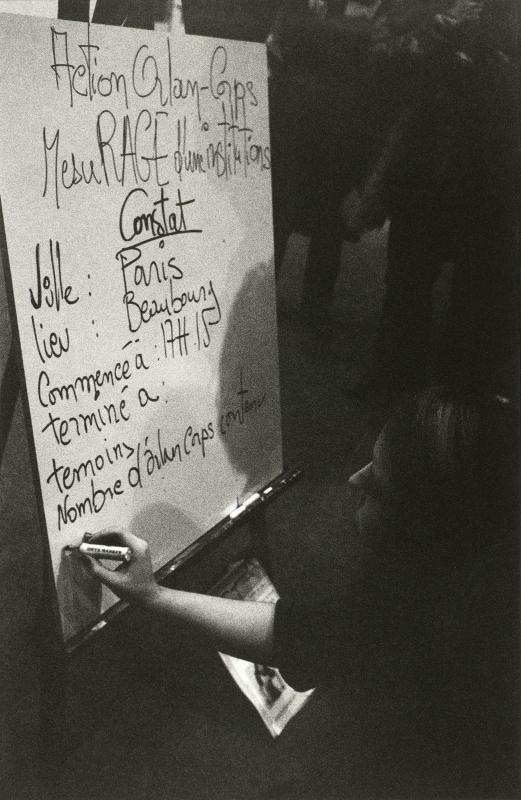 Action Orlan-Corps
MesuRAGE d'une institutions
Constat
Ville : Paris
lieu : Beaubourg
Commencé à : 17H 15
terminé à :
temoins
Nombre d'orlan Corps contenu